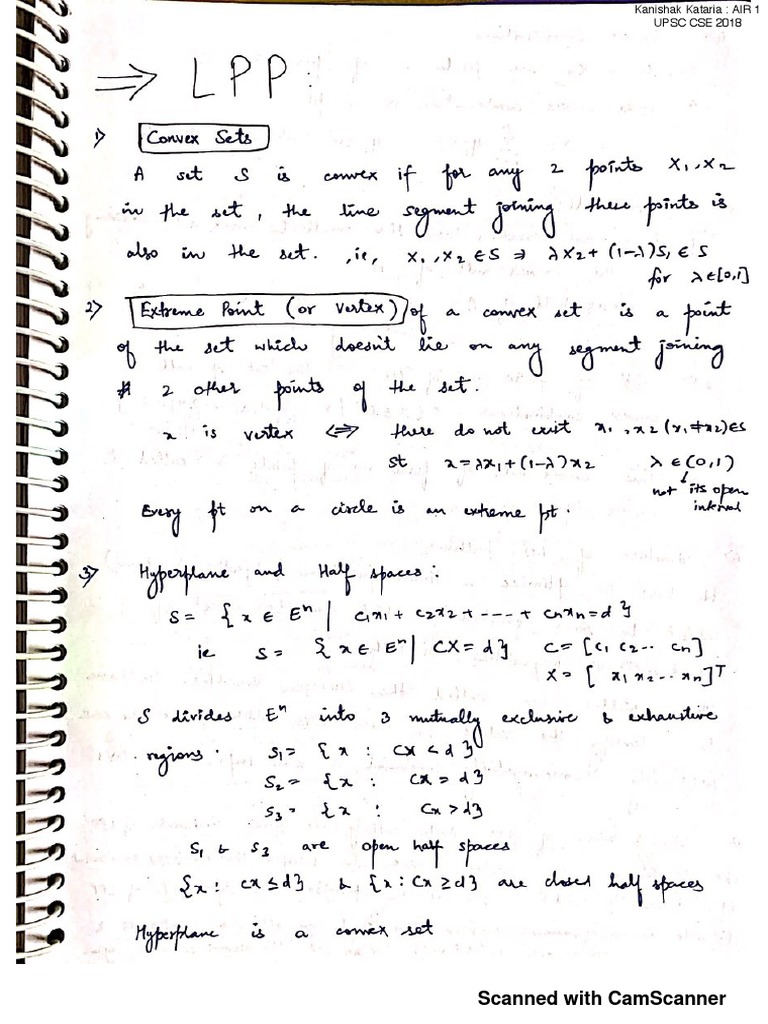 Kanishak Kataria : AIR 1
UPSC CSE 2018
⇒ LPP :
1) Convex Sets
A set S is convex if for any 2 points X₁, X₂
in the set, the line segment joining these points is
also in the set. ,ie, X₁, X₂ ∈ S ⇒ λX₂ + (1-λ)S₁ ∈ S
for λ ∈ [0,1]
2) Extreme Point (or Vertex) of a convex set is a point
of the set which doesn't lie on any segment joining
2 other points of the set.
x is vertex ⇔ there do not exist x₁, x₂ (x₁ ≠ x₂) ∈ S
st x = λx₁ + (1-λ)x₂ λ ∈ (0,1)
not its open
interval
Every pt on a circle is an extreme pt.
3) Hyperplane and Half spaces :
S = { x ∈ Eⁿ | c₁x₁ + c₂x₂ + ---- + cₙxₙ = d }
ie S = { x ∈ Eⁿ | CX = d } C = [c₁ c₂ .. cₙ]
X = [ x₁ x₂ .. xₙ]ᵀ
S divides Eⁿ into 3 mutually exclusive & exhaustive
regions. S₁ = { x : CX < d }
S₂ = { x : CX = d }
S₃ = { x : Cx > d }
S₁ & S₃ are open half spaces
{x : CX ≤ d} & {x : Cx ≥ d} are closed half spaces
Hyperplane is a convex set
Scanned with CamScanner